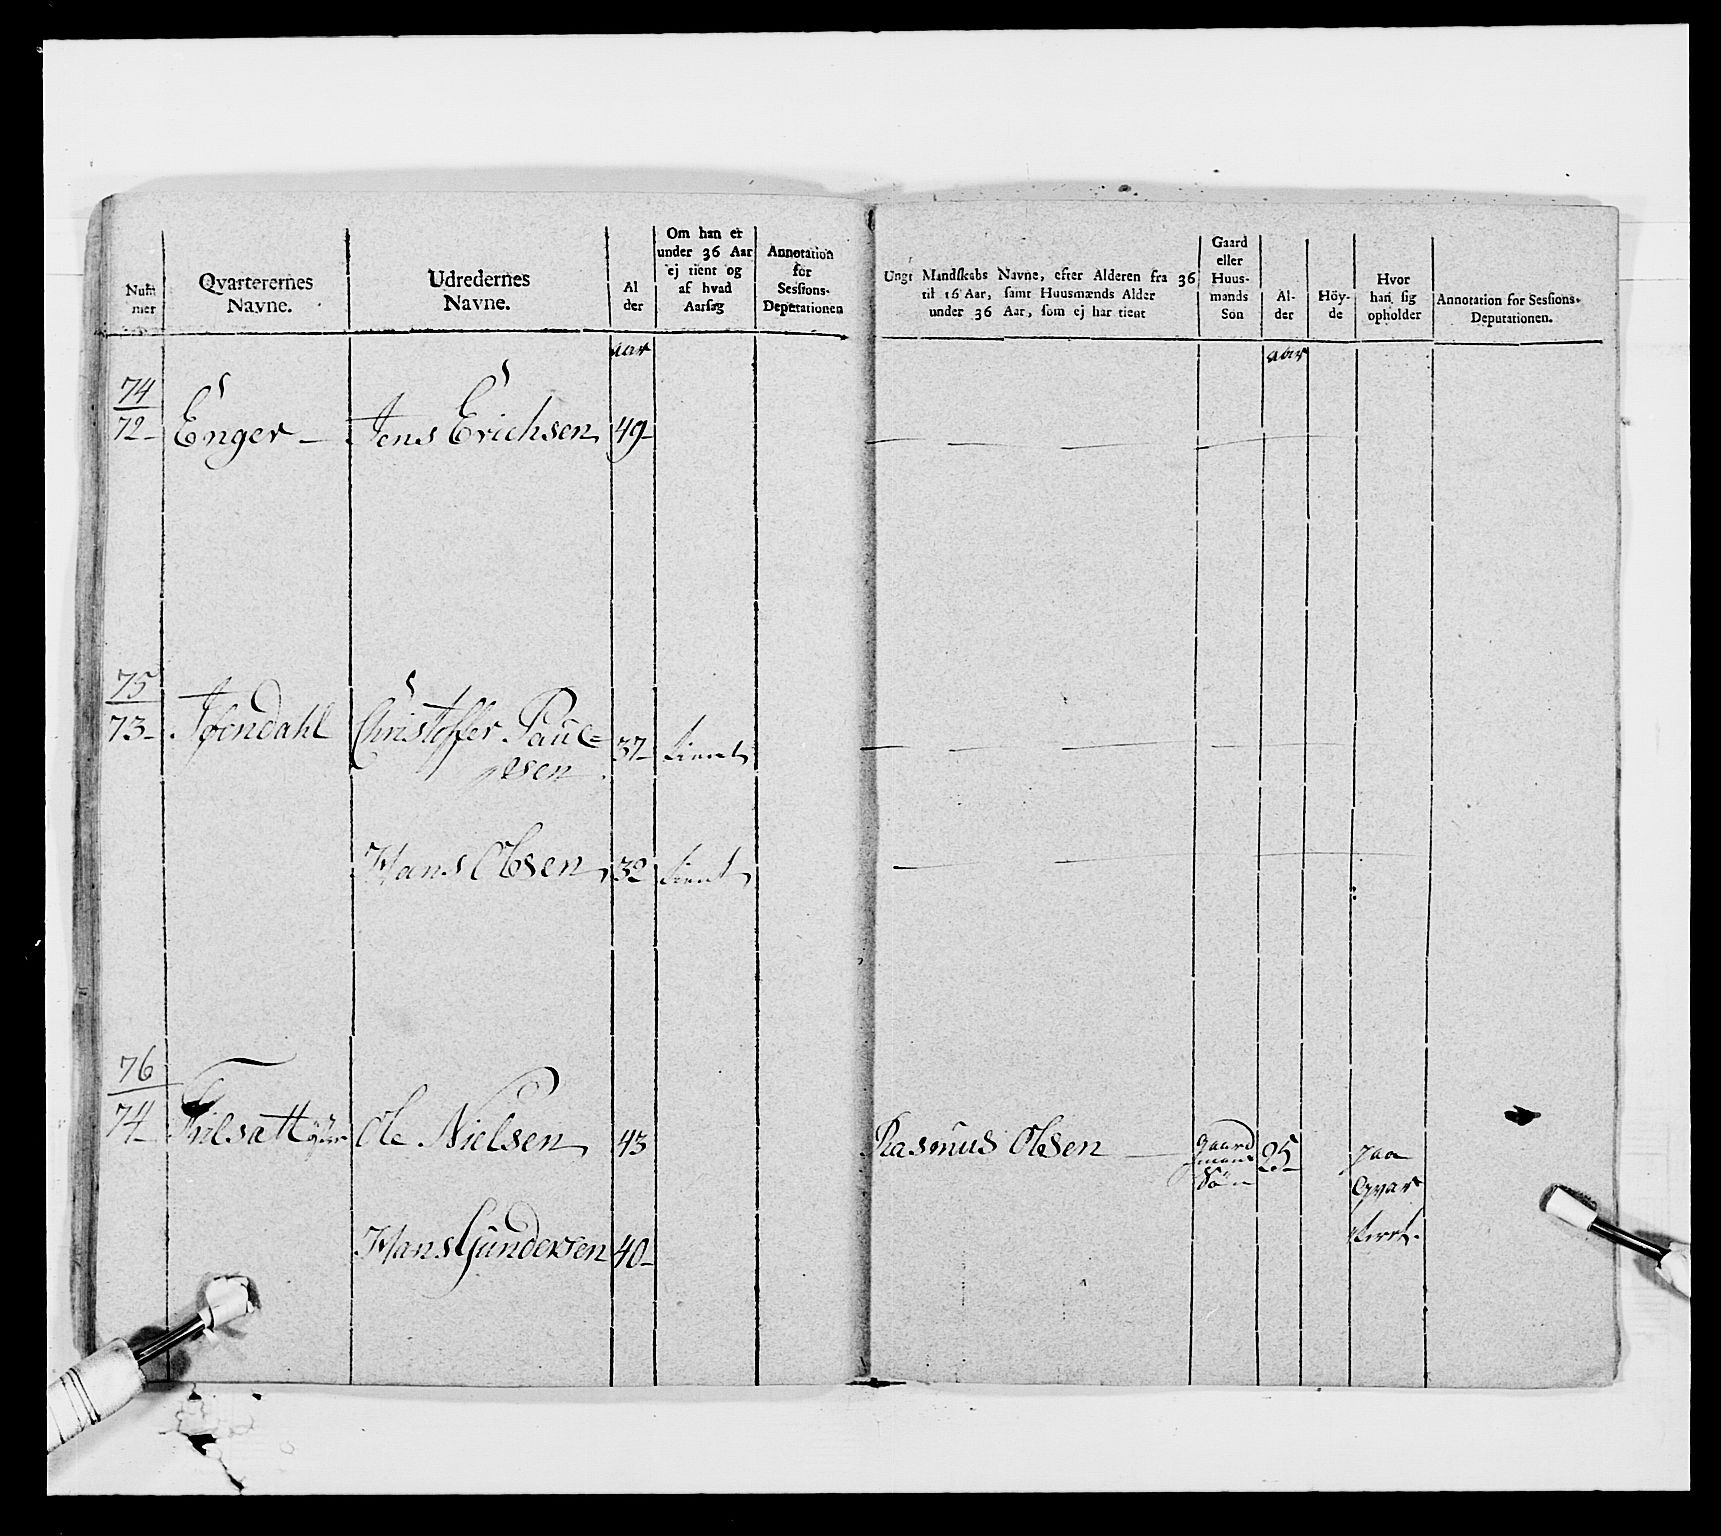 Num mer
Qvarterernes Navne.
Udredernes Navne.
Al der
Om han er under 36 Aar ej tient og af hvad Aarsag
Annotation for Sessions-Deputationen
Ungt Mandskabs Navne, efter Alderen fra 36 til 16 Aar, samt Huusmænds Alder under 36 Aar, som ej har tient
Gaard eller Huus-mands Søn
Al-der
Höy-de
Hvor han sig opholder
Annotation for Sessions-Deputationen.
aar
aar
74
72- Enger - Jens Erichsen 49-
75
73- Christoffer Paul= 37- tient
esen
Hans Olsen 32 tient
76
74- Ole Nielsen 43 Rasmus Olsen - gaard mans Søn 25- paa Qvar teret.
Hans Gundersen 40-